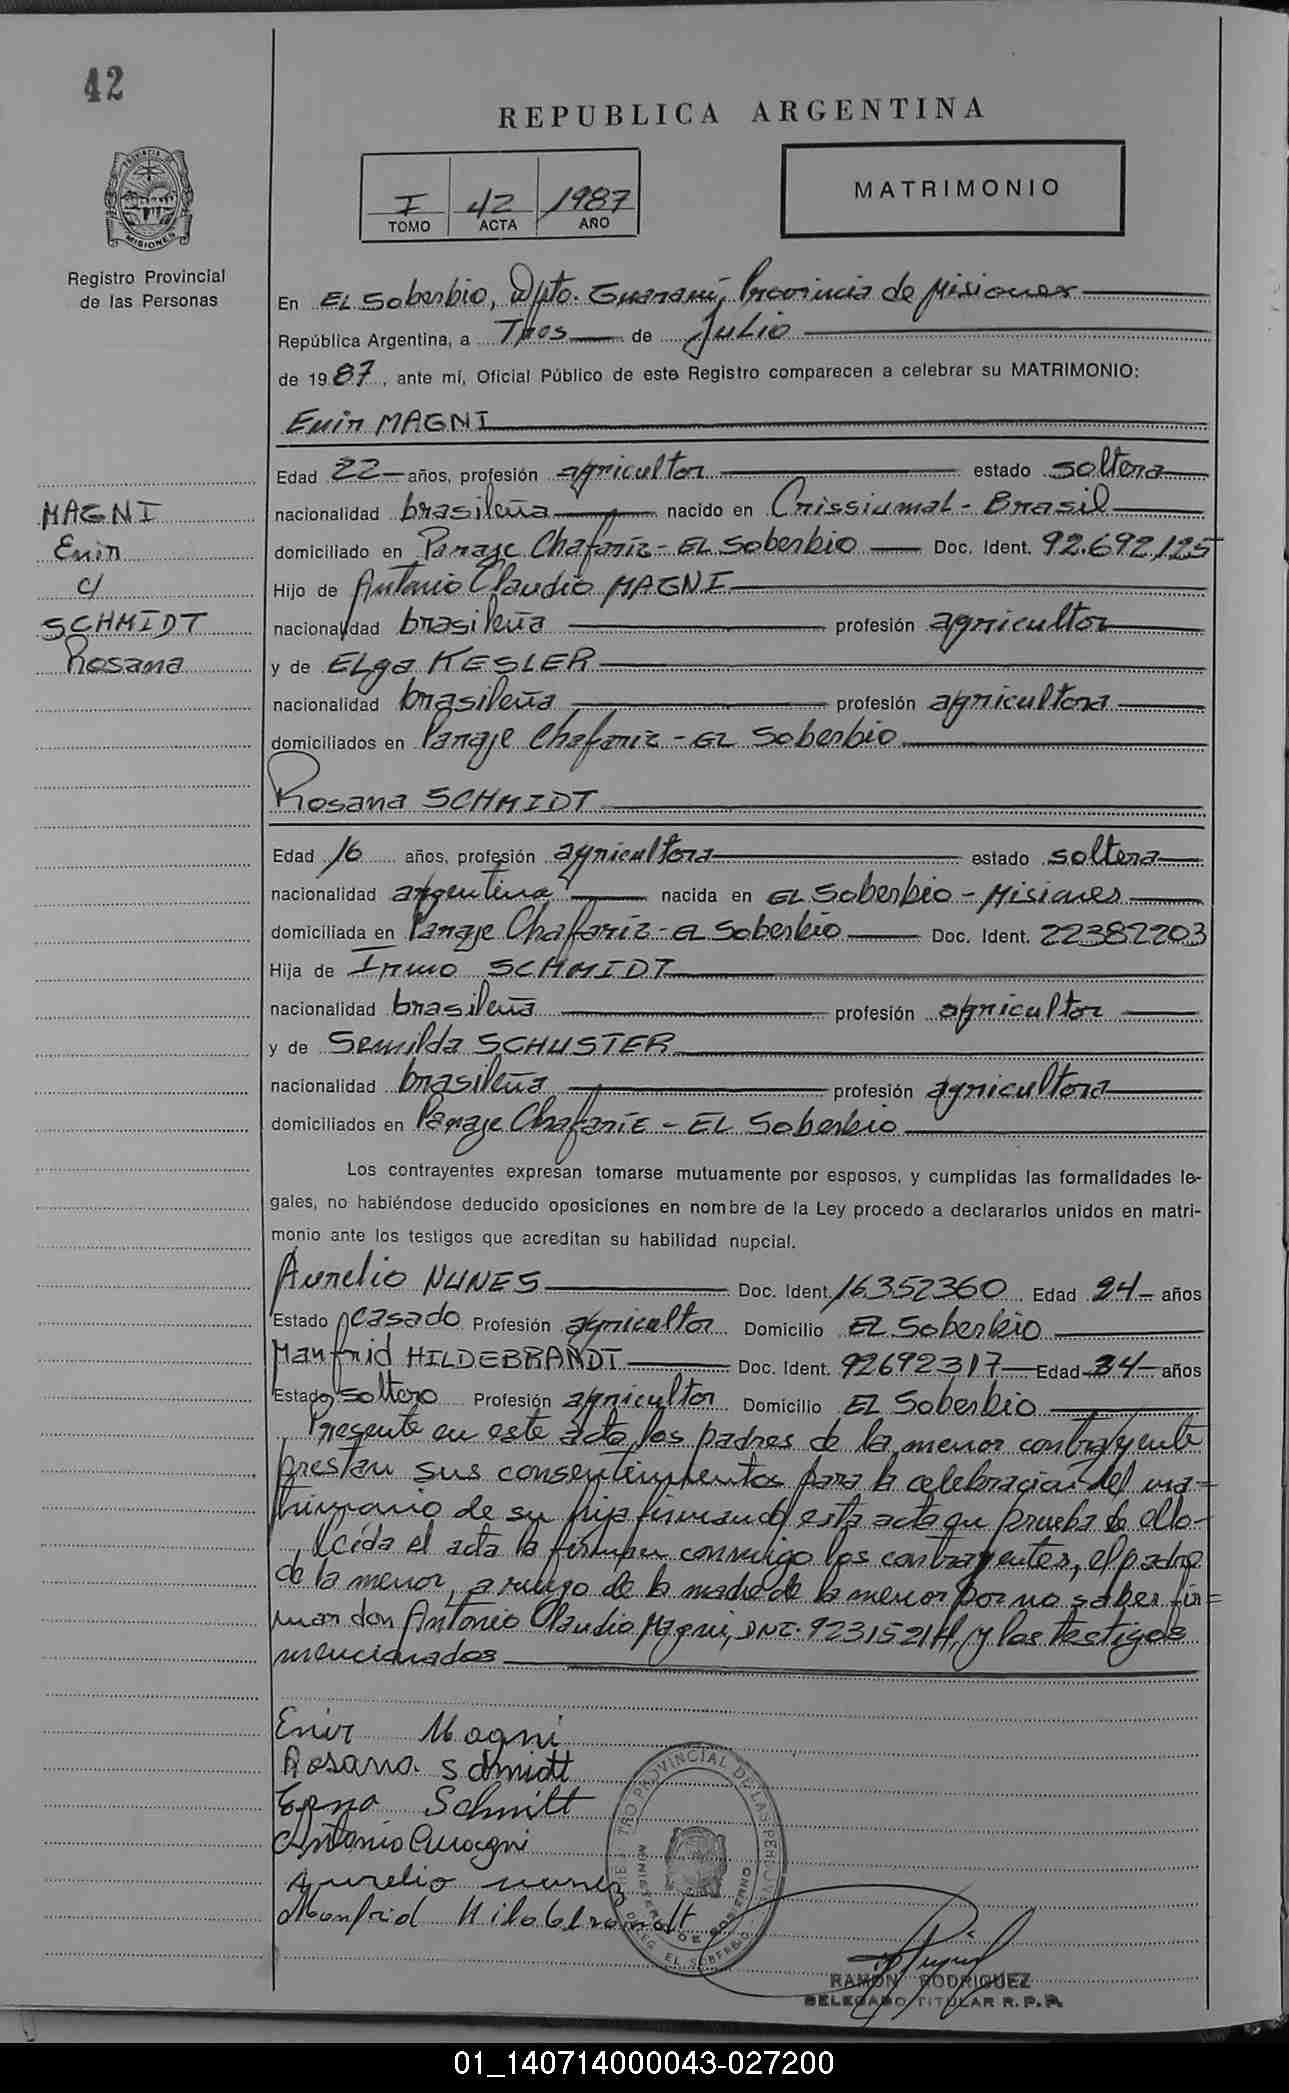 42
REPUBLICA ARGENTINA
I 42 1987
TOMO ACTA AÑO
MATRIMONIO
PROVINCIA DE
MISIONES
Registro Provincial
de las Personas
En EL Soberbio, Dpto. Guaraní, Provincia de Misiones
República Argentina, a Tres de Julio
de 1987, ante mí, Oficial Público de este Registro comparecen a celebrar su MATRIMONIO:
Enir MAGNI
Edad 22 años, profesión agricultor estado soltera
MAGNI
Enir
c/
SCHMIDT
Rosana
nacionalidad brasileña nacido en Crissiumal - Brasil
domiciliado en Paraje Chafariz - EL Soberbio Doc. Ident. 92.692.125
Hijo de Antonio Claudio MAGNI
nacionalidad brasileña profesión agricultor
y de ELga KESLER
nacionalidad brasileña profesión agricultora
domiciliados en Paraje Chafariz - EL Soberbio
Rosana SCHMIDT
Edad 16 años, profesión agricultora estado soltera
nacionalidad argentina nacida en EL Soberbio - Misiones
domiciliada en Paraje Chafariz - EL Soberbio Doc. Ident. 22382203
Hija de Irmo SCHMIDT
nacionalidad brasileña profesión agricultor
y de Semilda SCHUSTER
nacionalidad brasileña profesión agricultora
domiciliados en Paraje Chafariz - EL Soberbio
Los contrayentes expresan tomarse mutuamente por esposos, y cumplidas las formalidades le-
gales, no habiéndose deducido oposiciones en nombre de la Ley procedo a declararlos unidos en matri-
monio ante los testigos que acreditan su habilidad nupcial.
Aurelio NUNES Doc. Ident. 16352360 Edad 24 años
Estado casado Profesión agricultor Domicilio EL Soberbio
Manfrid HILDEBRANDT Doc. Ident. 92692317 Edad 34 años
Estado soltero Profesión agricultor Domicilio EL Soberbio
Presente en este acto los padres de la menor contrayente
prestan sus consentimientos para la celebración del ma=
trimonio de su hija firmando esta acta en prueba de ello-
Leída el acta la firman conmigo los contrayentes, el padre
de la menor, a ruego de la madre de la menor por no saber fir=
mar don Antonio Claudio Magni, DNI. 92315214, y los testigos
mencionados
Enir Magni
Rosana Schmidt
Erno Schmitt
Antonio C Magni
Aurelio nunez
Manfrid Hildebrandt
RAMON RODRIGUEZ
DELEGADO TITULAR R.P.P.
01_140714000043-027200